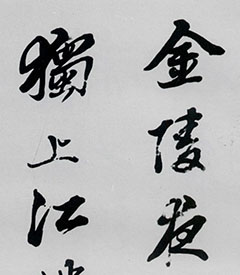 金陵夜
獨上江